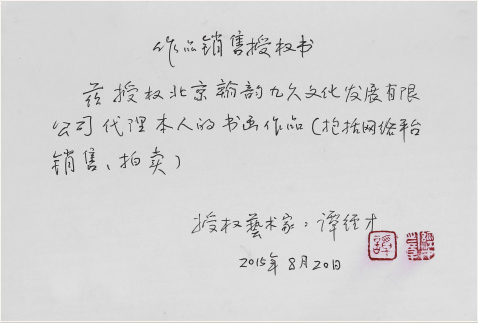 作品销售授权书
兹授权北京翰韵九久文化发展有限
公司代理本人的书画作品(包括网络平台
销售、拍卖)
授权藝术家:谭经才
2015年8月20日